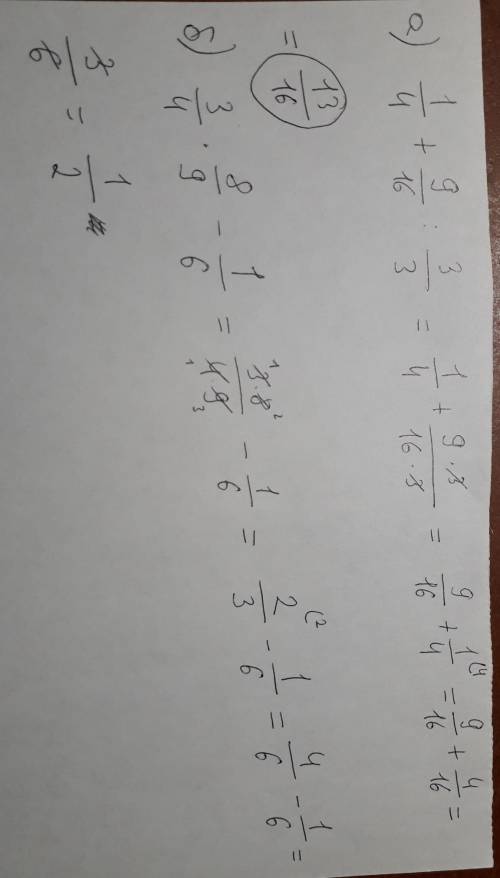 а) 1/4 + 9/16 : 3/3 = 1/4 + 9·3/16·3 = 9/16 + 1/4 (4 = 9/16 + 4/16 =
= 13/16
б) 3/4 · 8/9 - 1/6 = 1 3·8 2/1 4·9 3 - 1/6 = 2/3 (2 - 1/6 = 4/6 - 1/6 =
3/6 = 1/2